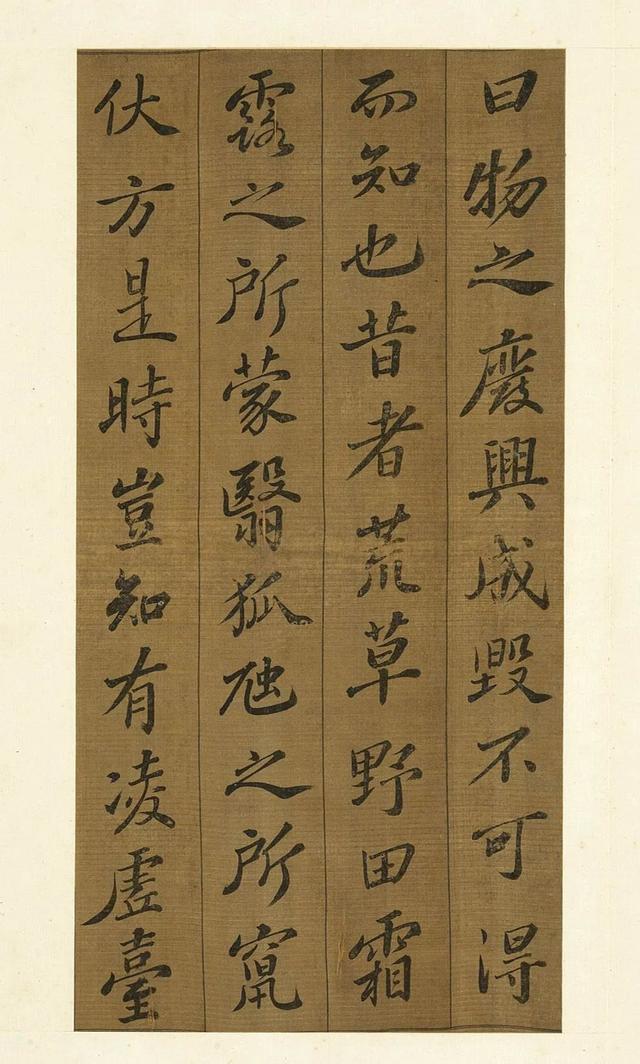 曰物之廢興成毀不可得
而知也昔者荒草野田霜
露之所蒙翳狐虺之所竄
伏方是時豈知有凌虛臺